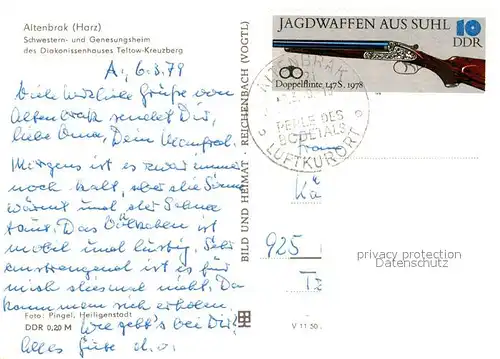 Altenbrak (Harz)
Schwestern- und Genesungsheim
des Diakonissenhauses Teltow-Kreuzberg
A., 6.3.79
Viele herzliche Grüße von
Altenbrak sendet Dir,
liebe Oma, Dein Manfred.
Morgens ist es zwar immer
noch kalt, aber die Sonne
wärmt und der Schnee
taut. Das Völkchen ist
mobil und lustig. Sehr
anstrengend ist es für
mich diesmal nicht. Da
kann man sich erholen.
Foto: Pingel, Heiligenstadt
DDR 0,20 M
Wie geht's bei Dir?
Alles Gute d. o.
BILD UND HEIMAT · REICHENBACH (VOGTL)
JAGDWAFFEN AUS SUHL 10
DDR
Doppelflinte 147S, 1978
ALTENBRAK
PERLE DES
BODETALS
LUFTKURORT
Frau
Kä
925
privacy protection
Datenschutz
V 11 50